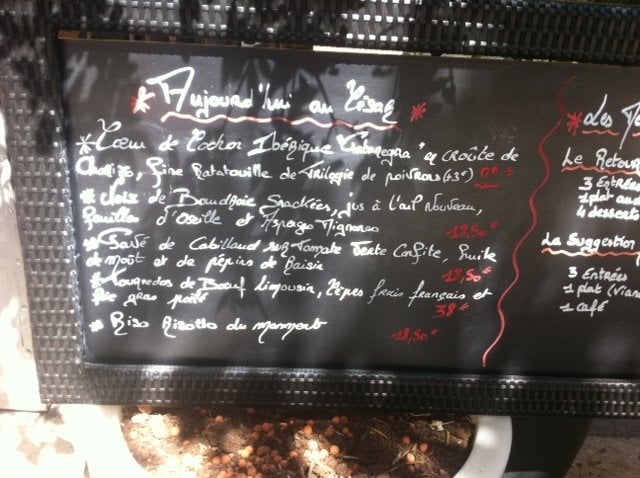 * Aujourd'hui au César *
* Cœur de Cochon Ibérique "Patanegra" en croûte de
Chorizo, Fine Ratatouille de Trilogie de poivrons
* de Baudroie Snackées, jus à l'ail nouveau,
d'Oseille et Asperges Mignonnes 18,50€
* Pavé de Cabillaud sur Tomate Verte Confite, huile
de moût et de pépins de Raisin 18,50€
* Tournedos de Bœuf Limousin, Cèpes frais français et
foie gras poêlé 38€
* Riso Risotto du moment 18,50€
* Les
Le Retour
3 Entrées
1 plat au
4 desserts
La Suggestion
3 Entrées
1 plat (Vian
1 café